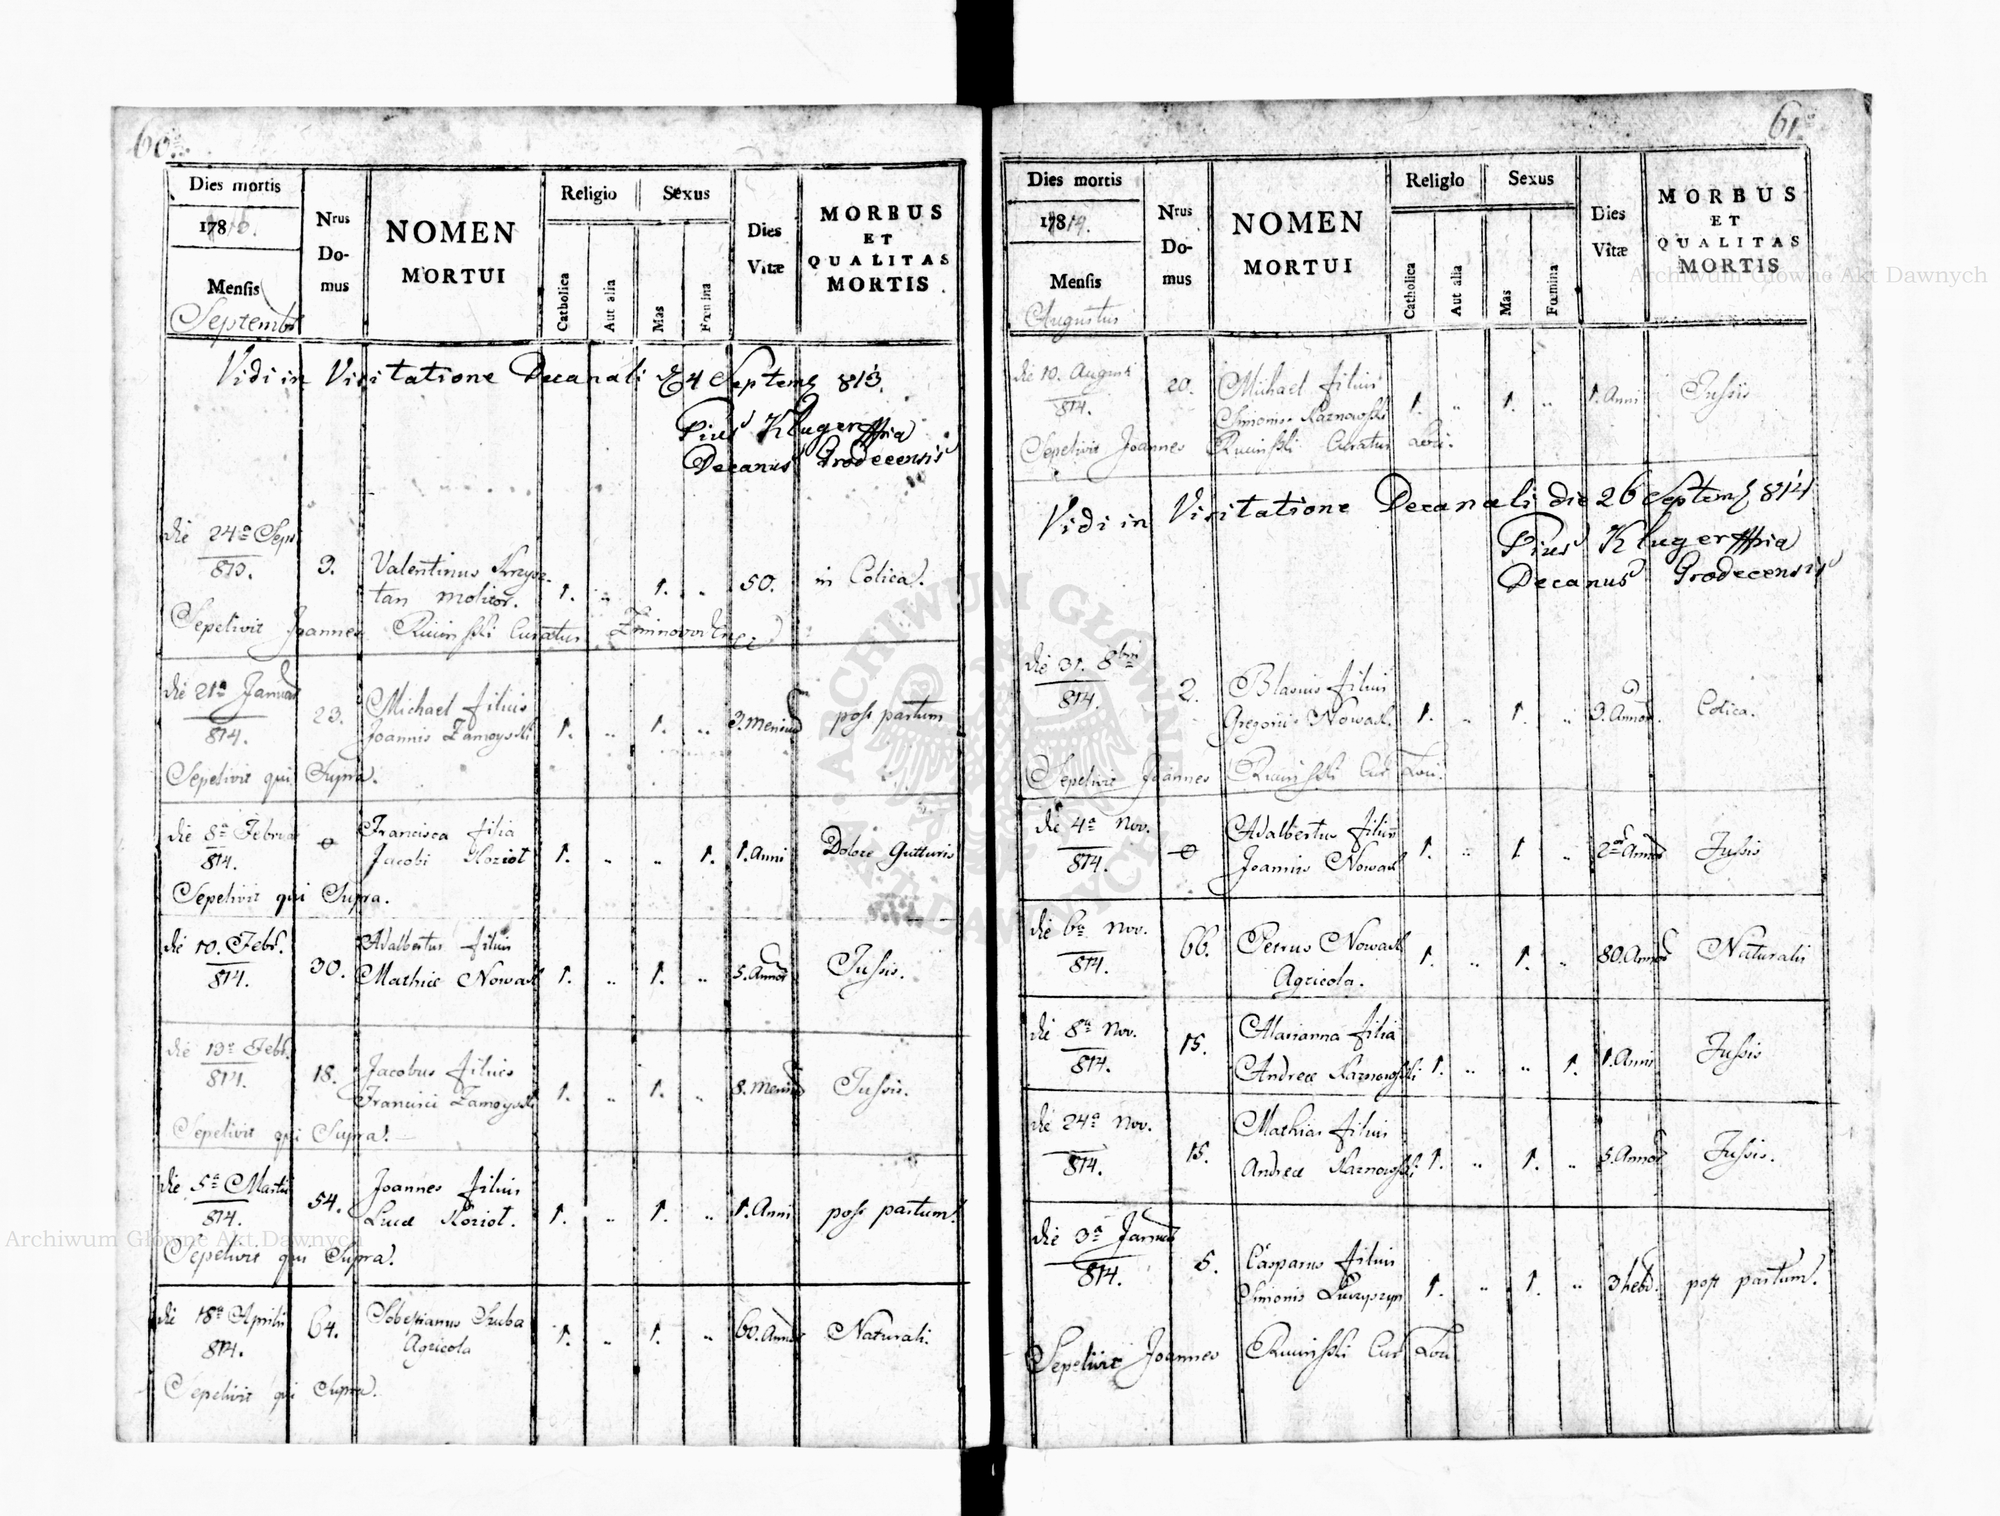 60.
Dies mortis
Nrus Domus
NOMEN MORTUI
Religio
Sexus
Dies Vitæ
MORBUS ET QUALITAS MORTIS
178
Catholica
Aut alia
Mas
Fœmina
Mensis
Septembr
Vidi in Visitatione Decanali 4 Septemb 813.
Pius Kluger
Decanus Grodecensis
die 24a Sept 813. 3. Valentinus
molitor. 1. „ 1. „ 50. in Colica.
Sepelivit Joannes Curatus
die 21a Januar 814. 23. Michael filius
Joannis Zamoyski 1. „ 1. „ 3. Mensium post partum
Sepelivit qui Supra.
die 8a Februar 814. 0 Francisca filia
Jacobi Koziot 1. „ „ 1. 1. Anni Dolore Gutturis
Sepelivit qui Supra.
die 10. Febr. 814. 30. Adalbertus filius
Mathiæ Nowak 1. „ 1. „ 5. Annor Tussis.
die 13a Febr. 814. 18. Jacobus filius
Francisci Zamoyski 1. „ 1. „ 8. Mensiu Tussis.
Sepelivit qui Supra.
die 5a Martii 814. 54. Joannes filius
Lucæ Koziot. 1. „ 1. „ 1. Anni post partum.
Sepelivit qui Supra.
die 18a Aprilis 814. 64. Sobestianus
Agricola 1. „ 1. „ 60. Annor Naturali.
Sepelivit qui Supra.
61.
Dies mortis
Nrus Domus
NOMEN MORTUI
Religio
Sexus
Dies Vitæ
MORBUS ET QUALITAS MORTIS
17814.
Catholica
Aut alia
Mas
Fœmina
Mensis
Augustus
die 10. Augusti 814. 20. Michael filius
Simonis Kaznowski 1. „ 1. „ 1. Anni Tussis
Sepelivit Joannes Curatus Loci.
Vidi in Visitatione Decanali die 26 Septemb 814
Pius Kluger
Decanus Grodecensis
die 31. 8bris 814. 2. Blasius filius
Gregorii Nowak. 1. „ 1. „ 3. Annor. Colica.
Sepelivit Joannes Cur Loci.
die 4a Nov. 814. 0 Adalbertus filius
Joannis Nowak 1. „ 1. „ 2 Annor Tussis
die 6a Nov. 814. 66. Petrus Nowak
Agricola. 1. „ 1. „ 80. Annor Naturali
die 8a Nov. 814. 15. Marianna filia
Andreæ Kaznowski 1. „ „ 1. 1. Anni Tussis
die 24a Nov. 814. 15. Mathias filius
Andreæ Kaznowski 1. „ 1. „ 5. Annor Tussis.
die 3a Januar 814. 5. Casparus filius
Simonis 1. „ 1. „ 3 hebd. post partum.
Sepelivit Joannes Cur Loci
Archiwum Główne Akt Dawnych
Archiwum Główne Akt Dawnych
ARCHIWUM GŁÓWNE AKT DAWNYCH